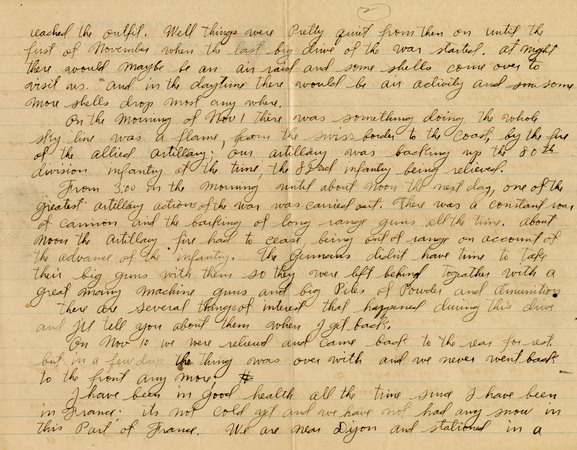 2
reached the outfit. Well things were Pretty quiet from then on until the
first of November when the last big drive of the war started. at night
there would maybe be an air raid and some shells come over to
visit us. "and in the daytime there would be air activity and some
more shells drop most any where.
On the morning of Nov 1 there was something doing, the whole
sky line was a flame, from the swiss border to the coast, by the fire
of the allied artillary; our artillary was backing up the 80th
division infantry at the time, the 82nd infantry being relieved.
From 3:00 in the morning until about noon the next day, one of the
greatest artillary actions of the war was carried out. There was a constant roar
of cannon and the barking of long range guns all the time. About
noon the Artillary fire had to cease being out of range on account of
the advance of the infantry. The Germans didn't have time to take
their big guns with them so they were left behind togather with a
great many machine guns and big Piles of Powder and Amunition
There are several things of interest that happened during this drive
and Ill tell you about them when I get back.
On Nov. 10 we were relieved and came back to the rear for rest
but in a few days the thing was over with and we never went back
to the front any more.
I have been in good health all the time since I have been
in France. its not cold yet and we have not had any snow in
this Part of France. We are near Dijon and stationed in a